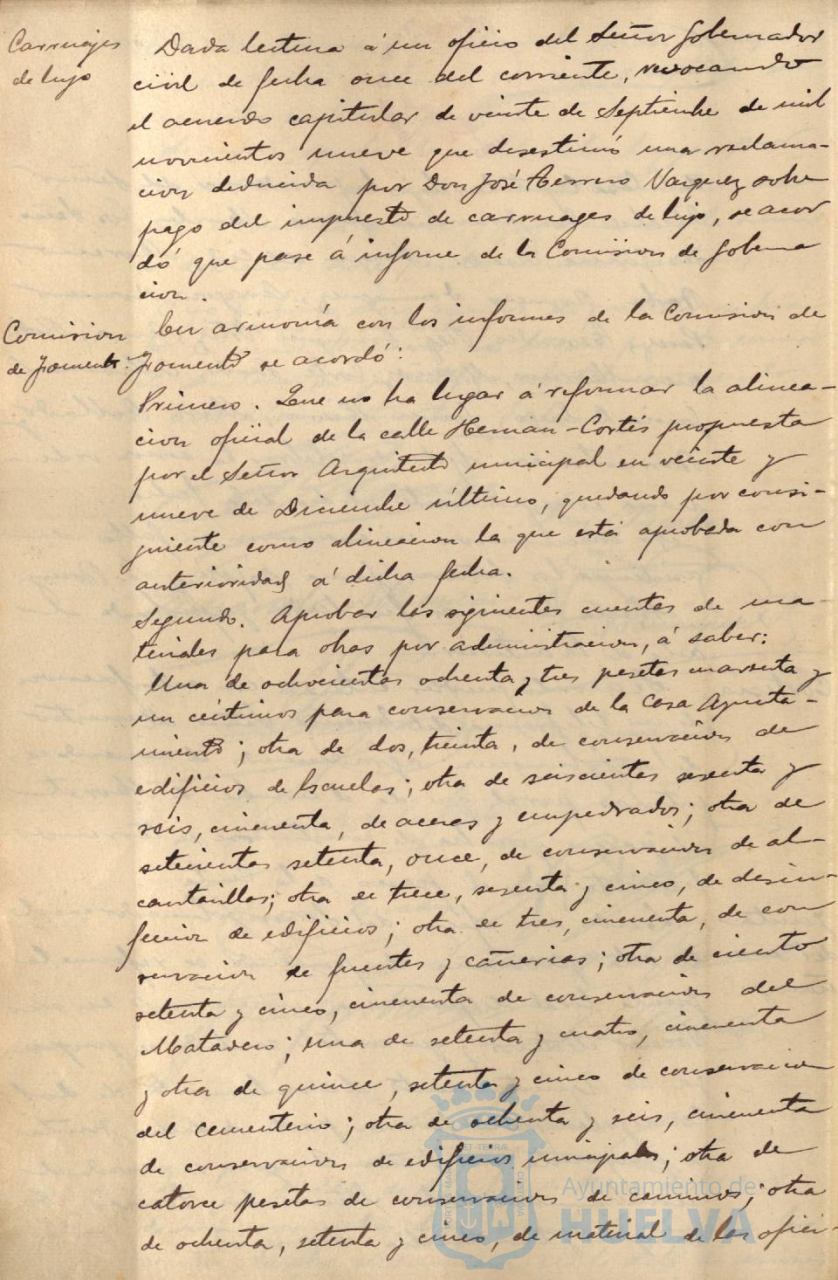 Carruajes
de lujo
Dada lectura á un oficio del Señor Gobernador
civil de fecha once del corriente, revocando
el acuerdo capitular de veinte de Septiembre de mil
novecientos nueve que desestimó una reclama-
cion deducida por Don José Terrero Vazquez sobre
pago del impuesto de carruages de lujo, se acor
dó que pase á informe de la Comision de Goberna
cion.
Comision
de Fomento.
En armonía con los informes de la Comision de
Fomento se acordó:
Primero. Que no ha lugar á reformar la alinea-
cion oficial de la calle Hernán-Cortés propuesta
por el Señor Arquitecto municipal en veinte y
nueve de Diciembre último, quedando por consi-
guiente como alineacion la que está aprobada con
anterioridad á dicha fecha.
Segundo. Aprobar las siguientes cuentas de ma
teriales para obras por administracion, á saber:
Una de ochocientas ochenta y tres pesetas cuarenta y
un céntimos para conservacion de la Casa Ayunta-
miento; otra de dos, treinta, de conservacion de
edificios de Escuelas; otra de seiscientas sesenta y
seis, cincuenta, de aceras y empedrados; otra de
setecientas setenta, once, de conservacion de al-
cantarillas; otra de trece, sesenta y cinco, de desin-
feccion de edificios; otra de tres, cincuenta, de con
servacion de fuentes y cañerias; otra de ciento
setenta y cinco, cincuenta de conservacion del
Matadero; una de setenta y cuatro, cincuenta
y otra de quince, setenta y cinco de conservacion
del cementerio; otra de ochenta y seis, cincuenta
de conservacion de edificios municipales; otra de
catorce pesetas de conservacion de caminos; otra
de ochenta, setenta y cinco, de material de las ofici-
Ayuntamiento de
HUELVA